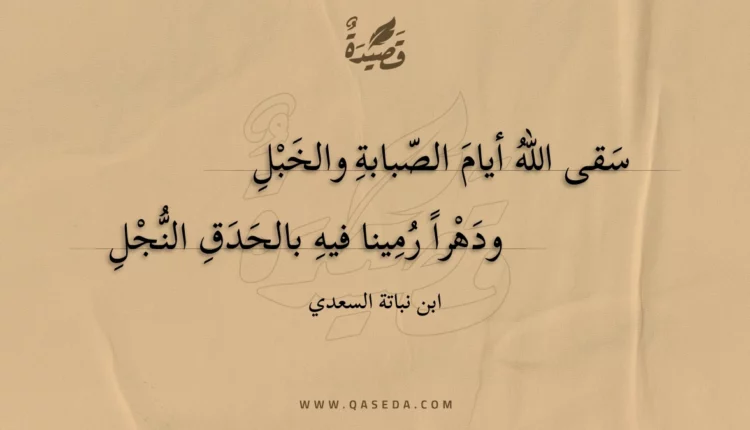 قَصِيدَةٌ
سَقى اللهُ أيامَ الصّبابةِ والخَبْلِ
ودَهْراً رُمِينا فيهِ بالحَدَقِ النُّجْلِ
ابن نباتة السعدي
WWW.QASEDA.COM